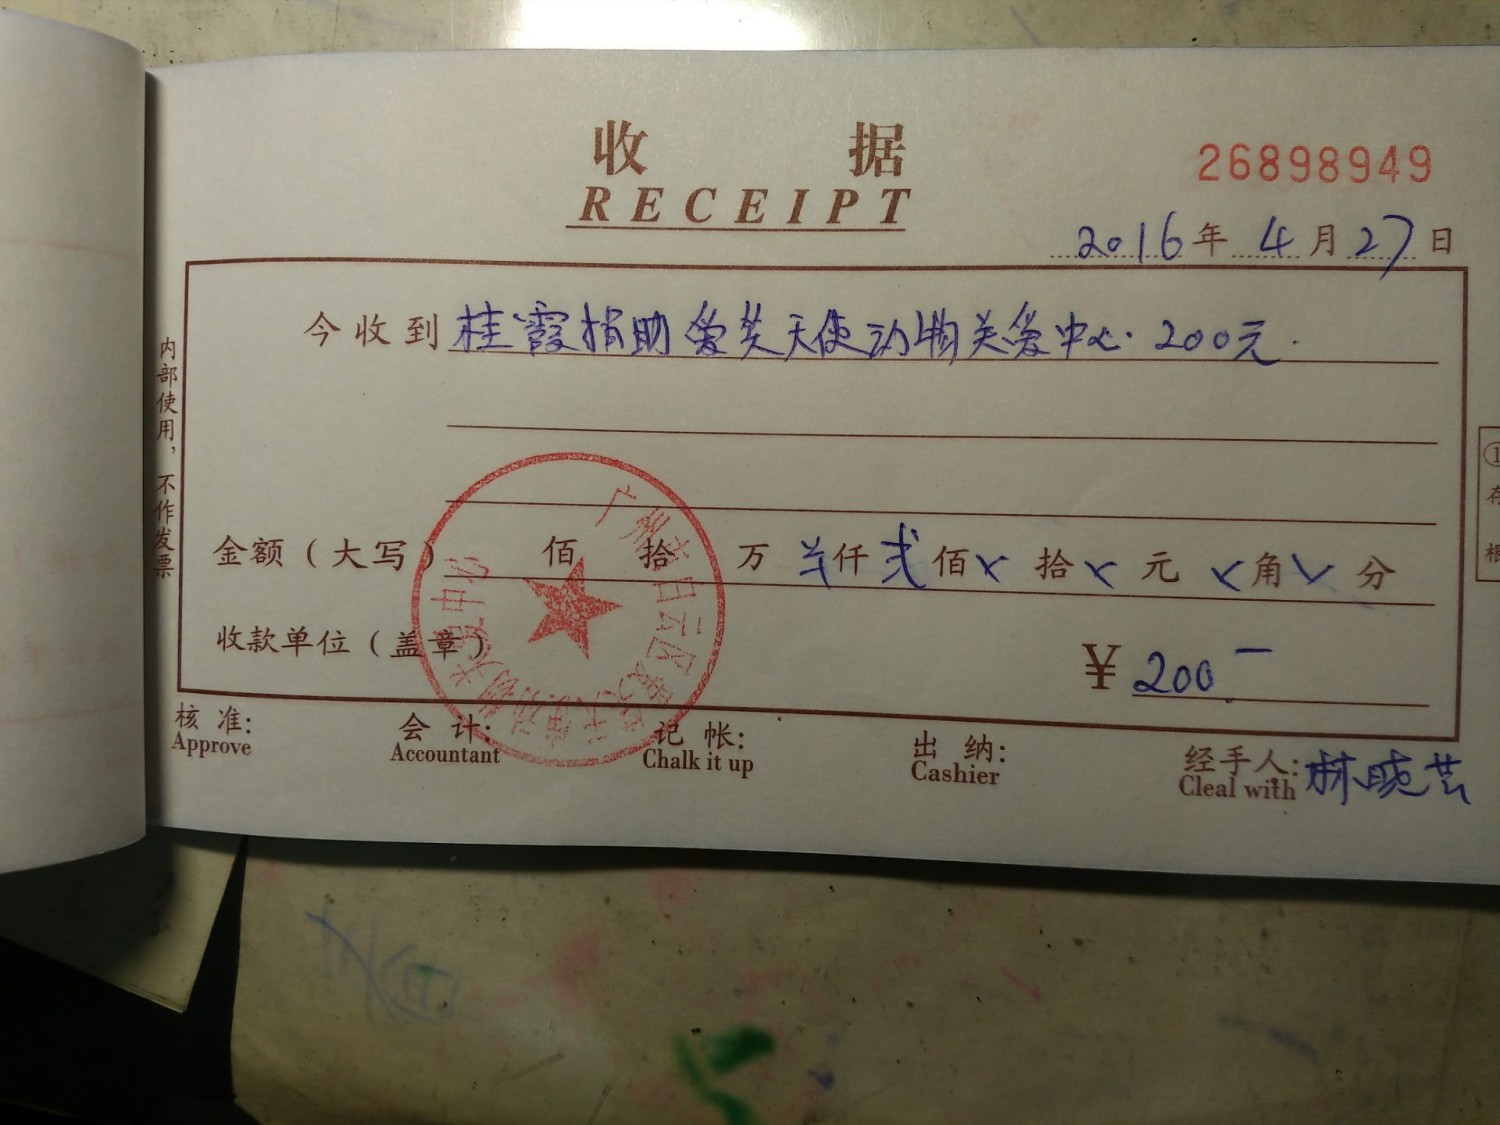 收 据
RECEIPT
26898949
2016年4月27日
今收到 桂霞捐助爱芙天使动物关爱中心. 200元.
金额(大写) 佰 拾 万 仟 贰 佰 × 拾 × 元 × 角 × 分
收款单位(盖章)
¥ 200 —
核 准: 会 计: 记 帐: 出 纳: 经手人: 林晓芸
Approve Accountant Chalk it up Cashier Cleal with
内部使用,不作发票
广州市白云区
动物关爱中心
①
存
根